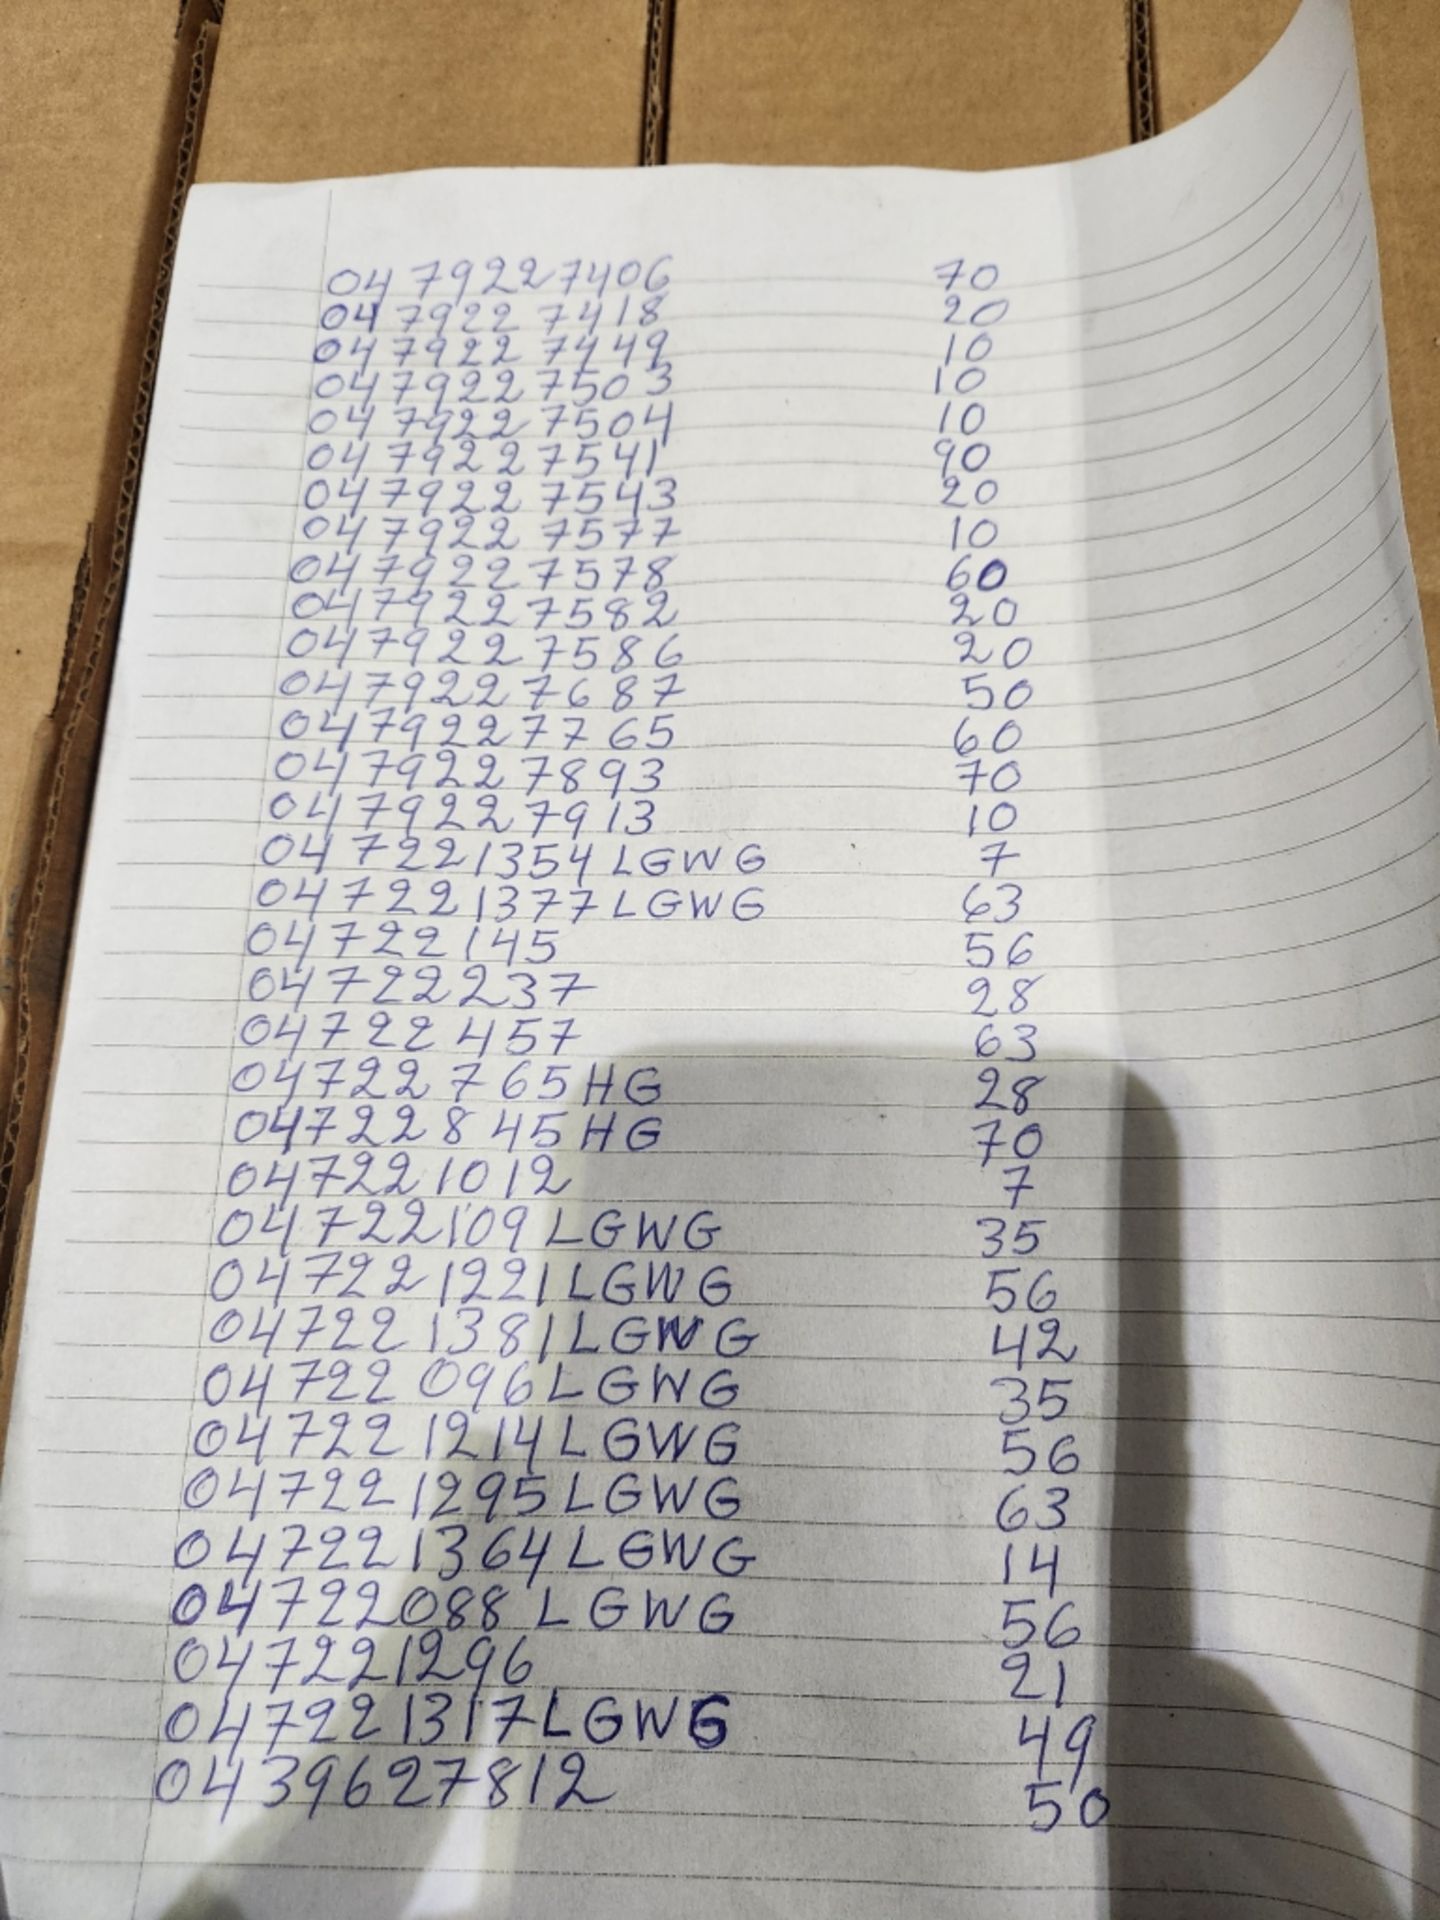 0479227406 70
0479227418 20
0479227449 10
0479227503 10
0479227504 10
0479227541 90
0479227543 20
0479227577 10
0479227578 60
0479227582 20
0479227586 20
0479227687 50
0479227765 60
0479227893 70
0479227913 10
047221354LGWG 7
047221377LGWG 63
04722145 56
04722237 28
04722457 63
04722765HG 28
04722845HG 70
047221012 7
04722109LGWG 35
047221221LGWG 56
047221381LGWG 42
04722096LGWG 35
047221214LGWG 56
047221295LGWG 63
047221364LGWG 14
04722088LGWG 56
047221296 21
047221317LGWG 49
0439627812 50